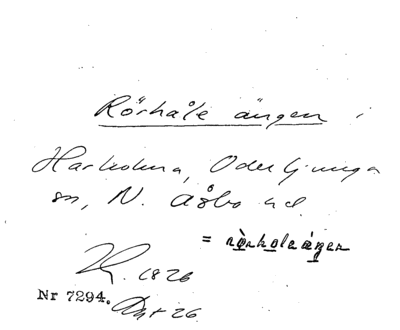 Rörhåle ängen
Harholma, Oderljunga
sn, N. Åsbo hd.
= rörholaängen
1826
Nr 7294.
26